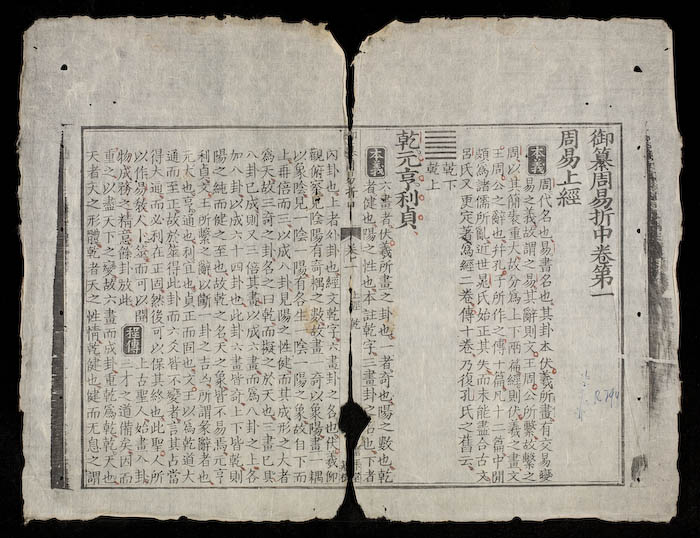 御纂周易折中卷第一
周易上經
本義
周代名也易書名也其卦本伏羲所畫有交易變
易之義故謂之易其辭則文王周公所繫故繫之
周以其簡袠重大故分為上下兩篇經則伏羲之畫文
王周公之辭也并孔子所作之傳十篇凡十二篇中間
頗為諸儒所亂近世晁氏始正其失而未能盡合古文
呂氏又更定著為經二卷傳十卷乃復孔氏之舊云
乾下
乾上
乾元亨利貞
本義
六畫者伏羲所畫之卦也一者奇也陽之數也乾
者健也陽之性也本註乾字三畫卦之名也下者
卷一
上經 乾
內卦也上者外卦也經文乾字六畫卦之名也伏羲仰
觀俯察見陰陽有奇耦之數故畫一奇以象陽畫一耦
以象陰見一陰一陽有各生一陰一陽之象故自下而
上再倍而三以成八卦見陽之性健而其成形之大者
為天故三奇之卦名之曰乾而擬之於天也三畫已具
八卦已成則又三倍其畫以成六畫而於八卦之上各
加八卦以成六十四卦也此卦六畫皆奇上下皆乾則
陽之純而健之至也故乾之名天之象皆不易焉元亨
利貞文王所繫之辭以斷一卦之吉凶所謂彖辭者也
元大也亨通也利宜也貞正而固也文王以為乾道大
通而至正故於筮得此卦而六爻皆不變者言其占當
得大通而必利在正固然後可以保其終也此聖人所
以作易教人卜筮而可以開
物成務之精意餘卦放此
程傳
上古聖人始畫八卦
三才之道備矣因而
重之以盡天下之變故六畫而成卦重乾為乾乾天也
天者天之形體乾者天之性情乾健也健而无息之謂